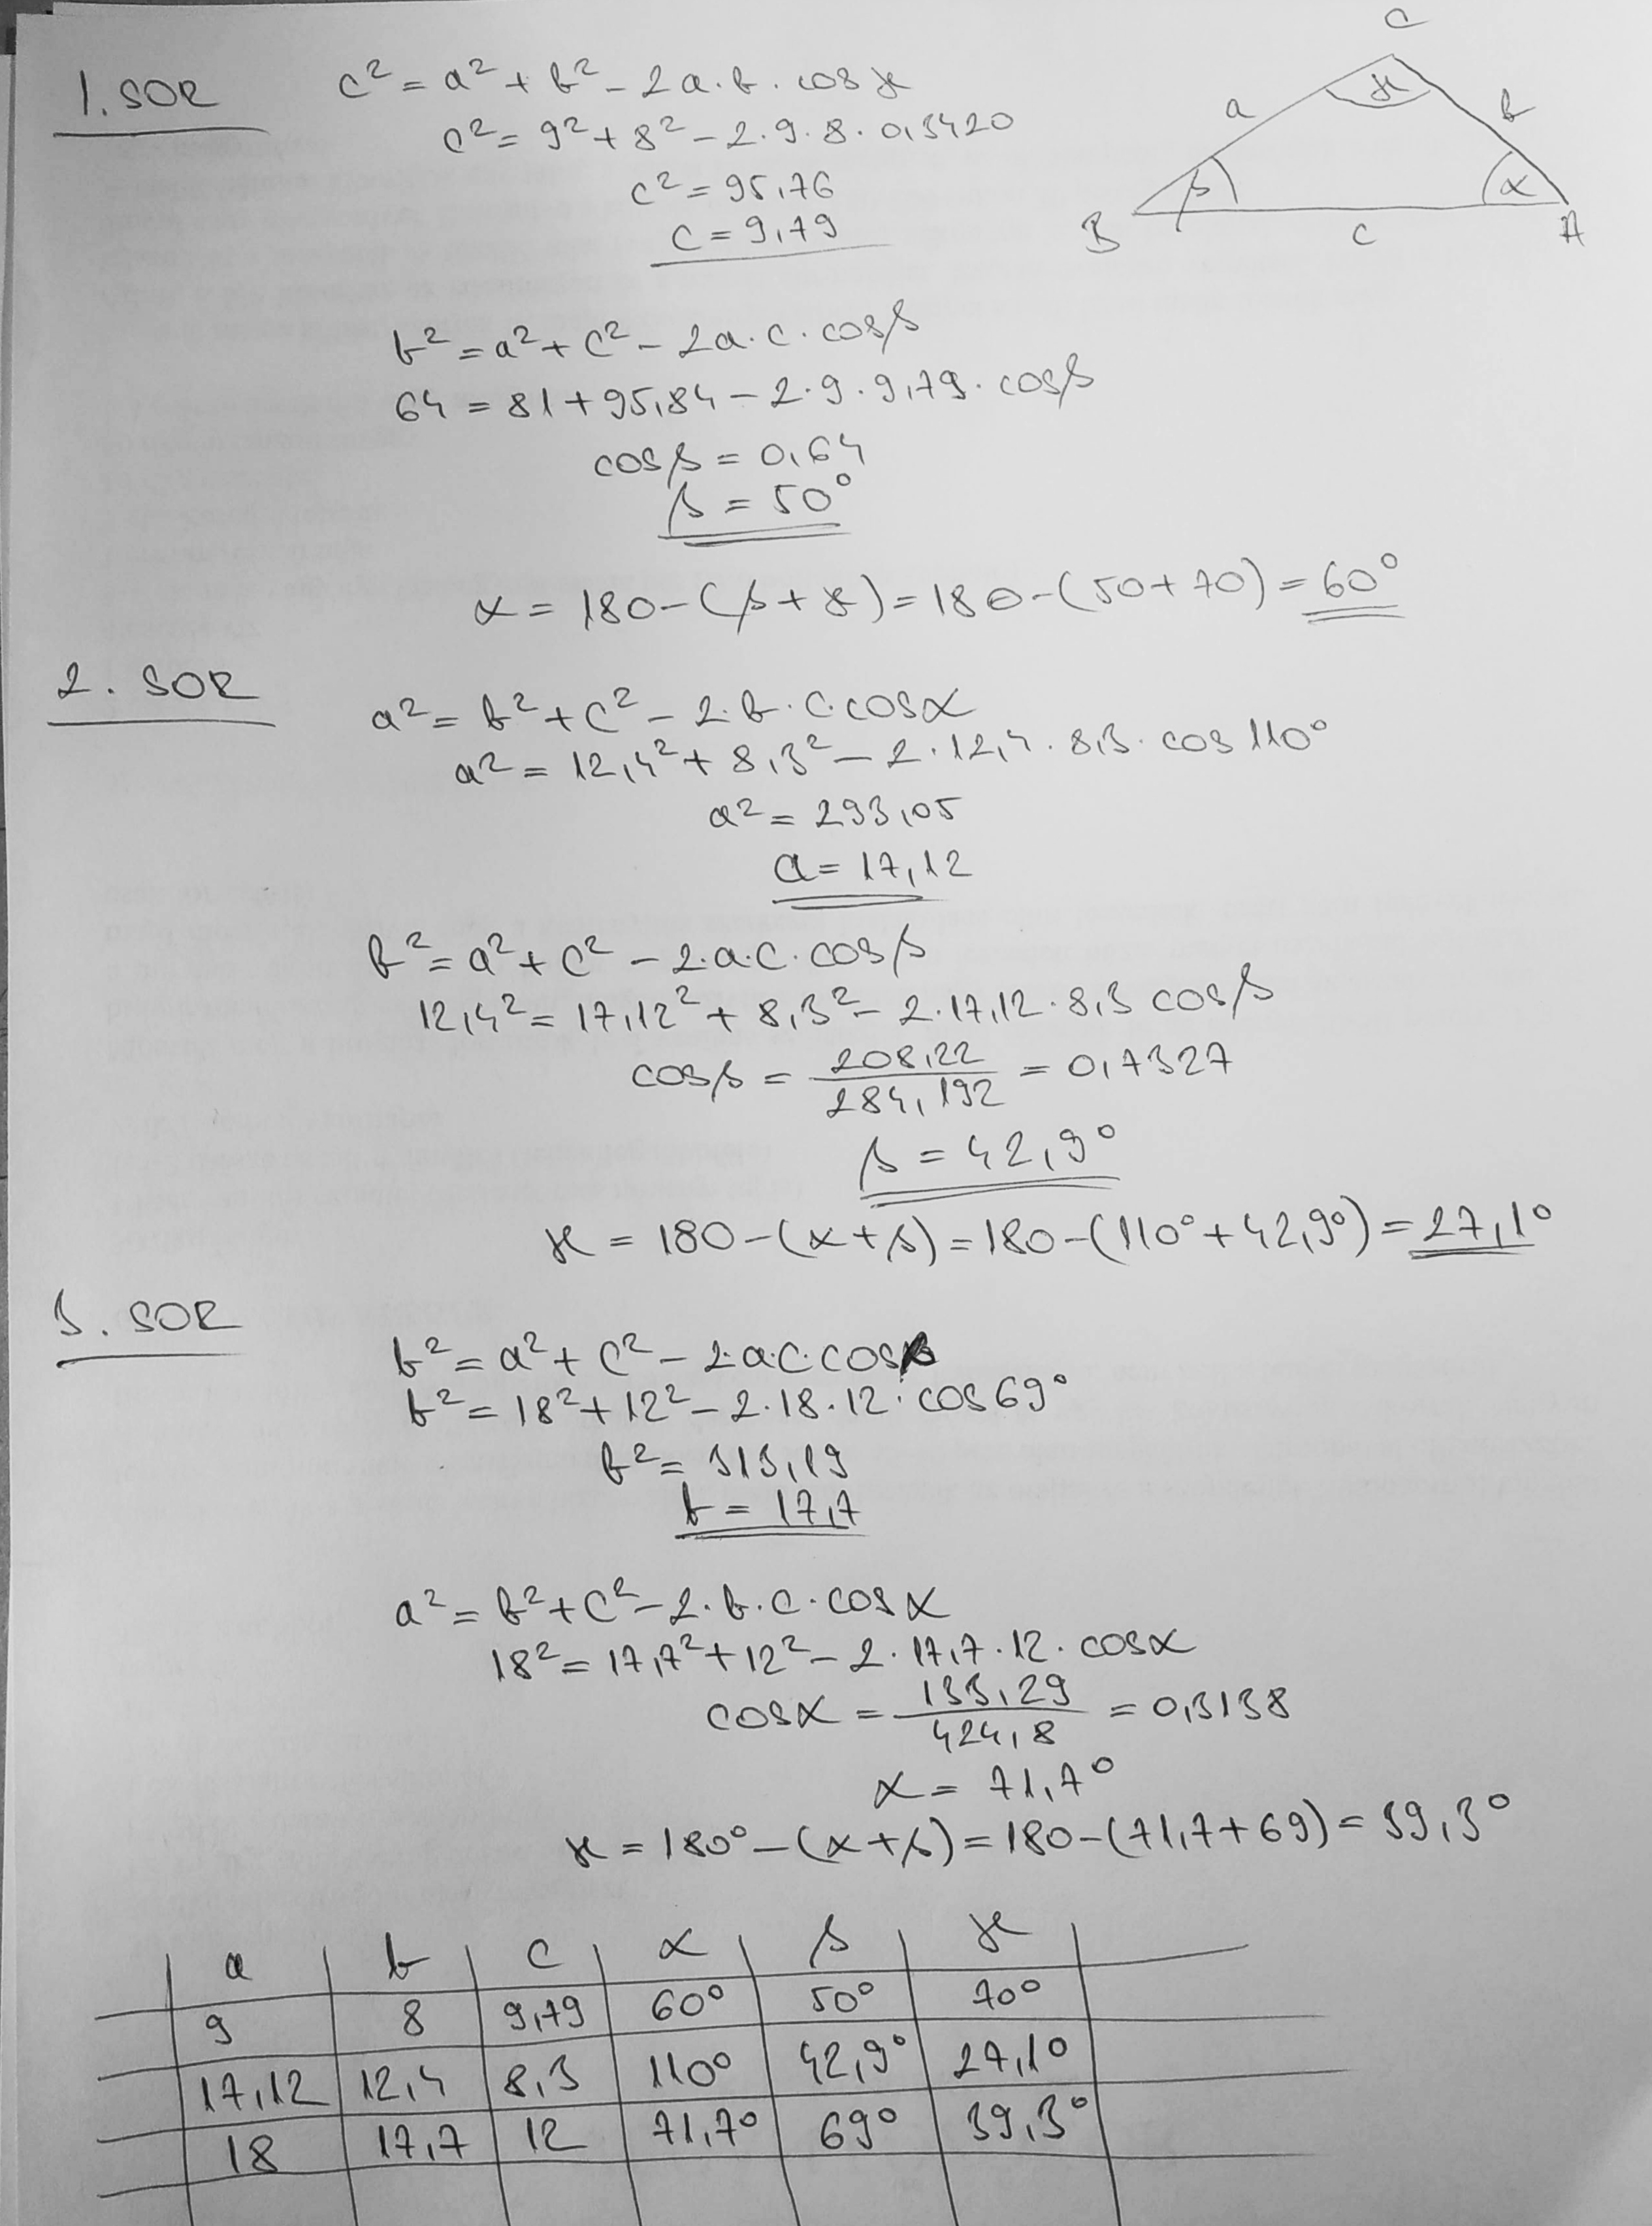 1. SOR
c² = a² + b² - 2a·b·cos γ
c² = 9² + 8² - 2·9·8·0,3420
c² = 95,76
c = 9,79
C
a
γ
b
β
α
B
c
A
b² = a² + c² - 2a·c·cosβ
64 = 81 + 95,84 - 2·9·9,79·cosβ
cosβ = 0,64
β = 50°
α = 180 - (β + γ) = 180 - (50 + 70) = 60°
2. SOR
a² = b² + c² - 2·b·c·cosα
a² = 12,4² + 8,3² - 2·12,4·8,3·cos 110°
a² = 293,05
a = 17,12
b² = a² + c² - 2·a·c·cosβ
12,4² = 17,12² + 8,3² - 2·17,12·8,3 cosβ
cosβ = 208,22 / 284,192 = 0,7327
β = 42,9°
γ = 180 - (α + β) = 180 - (110° + 42,9°) = 27,1°
3. SOR
b² = a² + c² - 2·a·c·cosβ
b² = 18² + 12² - 2·18·12·cos69°
b² = 313,19
b = 17,7
a² = b² + c² - 2·b·c·cosα
18² = 17,7² + 12² - 2·17,7·12·cosα
cosα = 133,29 / 424,8 = 0,3138
α = 71,7°
γ = 180° - (α + β) = 180 - (71,7 + 69) = 39,3°
a b c α β γ
9 8 9,79 60° 50° 70°
17,12 12,4 8,3 110° 42,9° 27,1°
18 17,7 12 71,7° 69° 39,3°